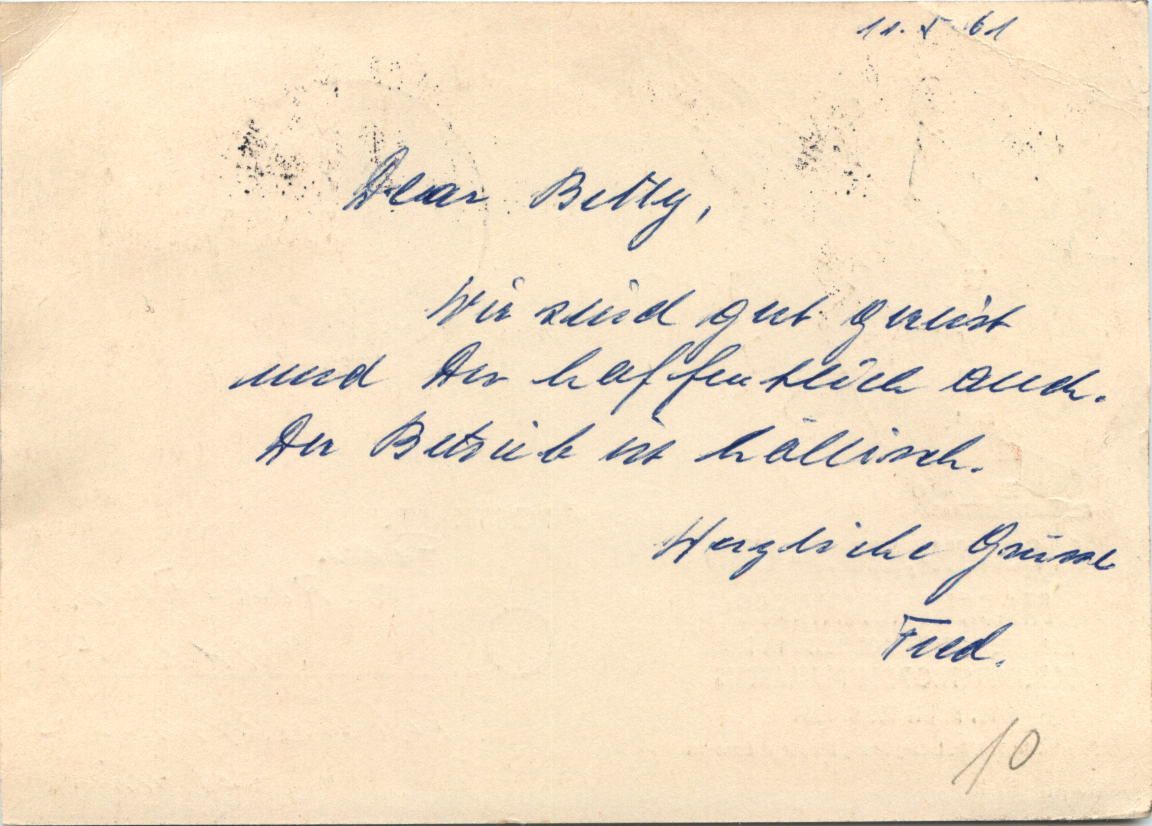 11. X 61
Dear Betty,
Wir sind gut gereist
und Du hoffentlich auch.
Der Betrieb ist höllisch.
Herzliche Grüsse
Fred.
10